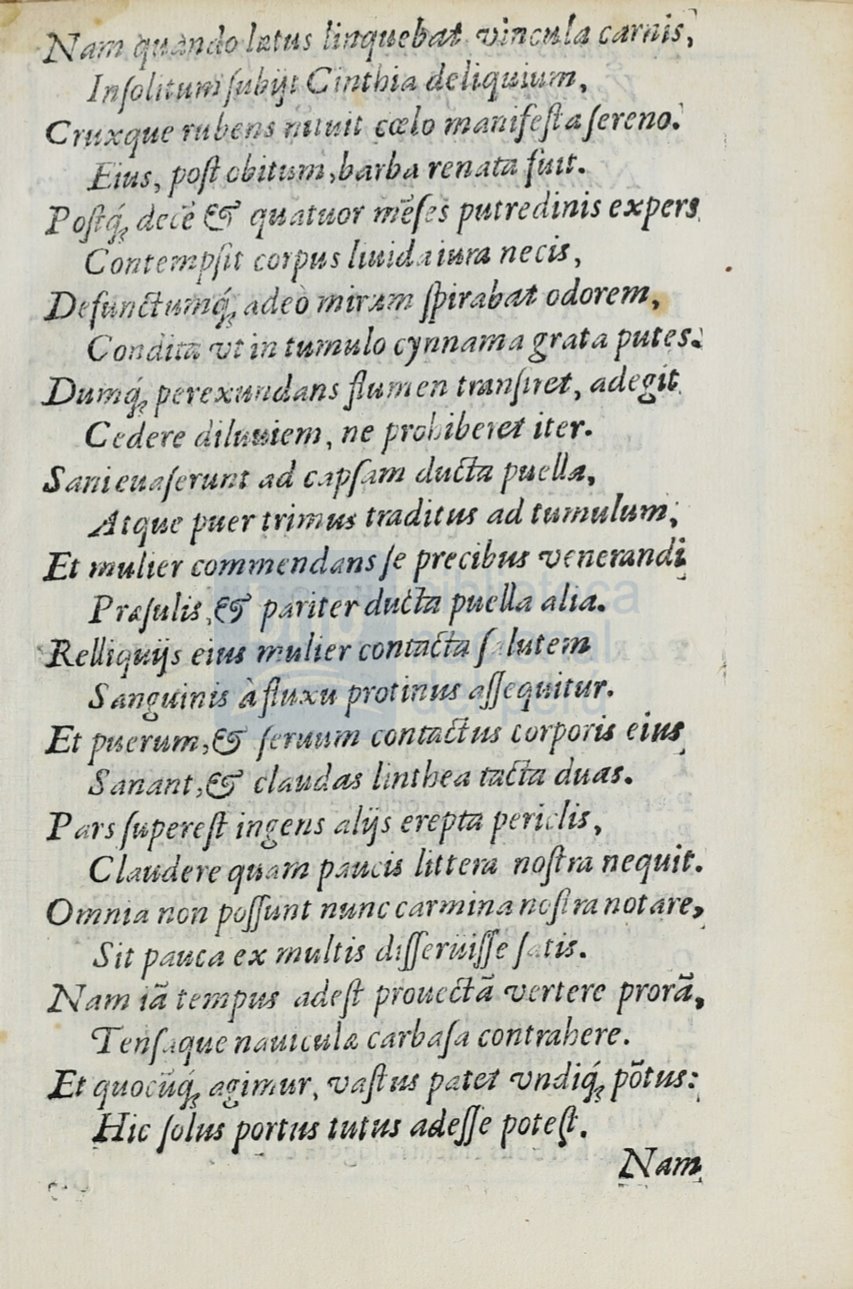 Nam quando lætus linquebat vincula carnis,
Inſolitum ſubijt Cinthia deliquium,
Cruxque rubens nituit cœlo manifeſta ſereno.
Eius, poſt obitum, barba renata fuit.
Poſtq́; decẽ & quatuor mẽſes putredinis expers
Contempſit corpus liuida iura necis,
Defunctumq́; adeò mirum ſpirabat odorem,
Condita vt in tumulo cynnama grata putes.
Dumq́; perexundans flumen tranſiret, adegit
Cedere diluuiem, ne prohiberet iter.
Sani euaſerunt ad capſam ducta puella,
Atque puer trimus traditus ad tumulum,
Et mulier commendans ſe precibus venerandi
Præſulis, & pariter ducta puella alia.
Relliquijs eius mulier contacta ſalutem
Sanguinis à fluxu protinus aſſequitur.
Et puerum, & ſeruum contactus corporis eius
Sanant, & claudas linthea tacta duas.
Pars ſupereſt ingens alijs erepta periclis,
Claudere quam paucis littera noſtra nequit.
Omnia non poſſunt nunc carmina noſtra notare,
Sit pauca ex multis diſſeruiſſe ſatis.
Nam iã tempus adeſt prouectã vertere prorã,
Tenſaque nauiculæ carbaſa contrahere.
Et quocũq́; agimur, vaſtus patet vndiq́; põtus:
Hic ſolus portus tutus adeſſe poteſt.
Nam